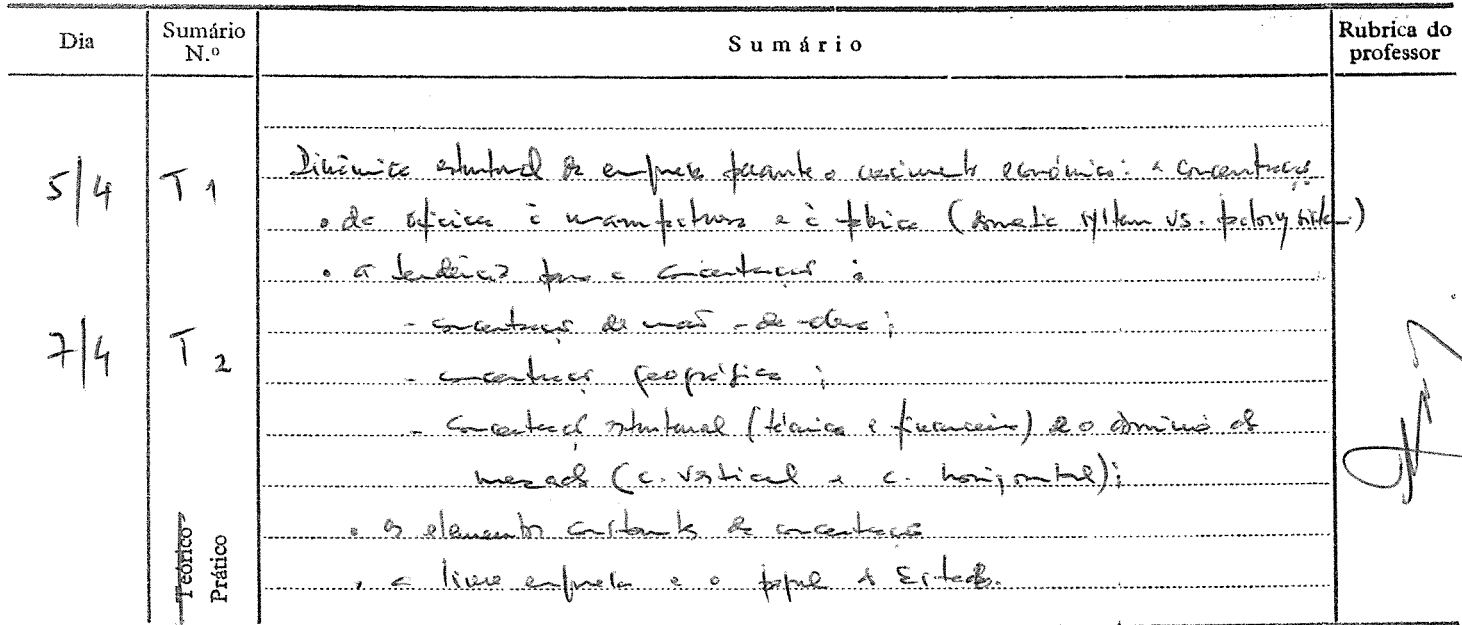 Dia Sumário N.º Sumário Rubrica do professor
5/4 T 1 Dinâmica estrutural da empresa perante o crescimento económico: a concentração
• da oficina à manufactura e à fábrica (domestic system vs. factory system)
• a tendência para a concentração:
- concentração de mão-de-obra;
7/4 T 2
- concentração geográfica;
- concentração estrutural (técnica e financeira) e o domínio do
mercado (c. vertical e c. horizontal);
• os elementos constantes da concentração
• a livre empresa e o papel do Estado.
Teórico
Prático